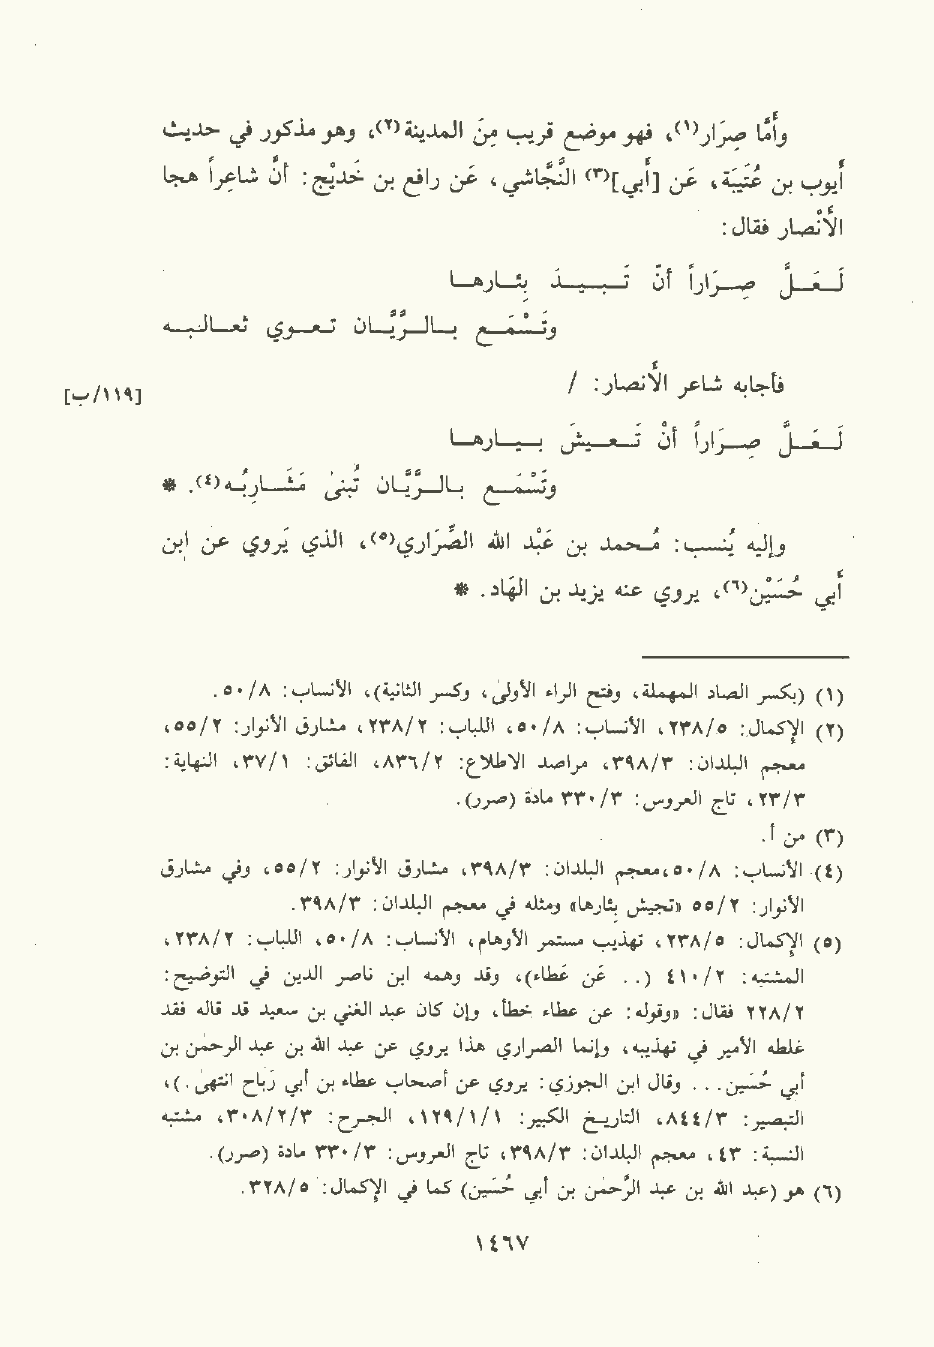 وأَمَّا صِرَار(١)، فهو موضع قريب مِنَ المدينة(٢)، وهو مذكور في حديث
أيوب بن عُتَيْبَة، عَن [أبي](٣) النَّجَاشي، عَن رافع بن خَدَيْج: أنَّ شاعِراً هجا
الأنْصار فقال:
لَـعَـلَّ صِـرَاراً أنّ تَـبـيـدَ بِئـارهـا
وتَسْمَـع بـالـرَّيَّـان تـعـوي ثعـالـبـه
فأجابه شاعر الأنصار: /
[١١٩/ب]
لَـعَـلَّ صِـرَاراً أنْ تَـعـيـشَ بـيـارهـا
وتَسْمَـع بـالـرَّيَّـان تُبنىٰ مَشَـارِبُـه(٤). *
وإليه يُنسب: مُحمد بن عَبْد الله الصِّرَاري(٥)، الذي يَروي عن ابن
أبي حُسَيْن(٦)، يروي عنه يزيد بن الهَاد. *
(١) (بكسر الصاد المهملة، وفتح الراء الأولىٰ، وكسر الثانية)، الأنساب: ٥٠/٨.
(٢) الإكمال: ٢٣٨/٥، الأنساب: ٥٠/٨، اللباب: ٢٣٨/٢، مشارق الأنوار: ٥٥/٢،
معجم البلدان: ٣٩٨/٣، مراصد الاطلاع: ٨٣٦/٢، الفائق: ٣٧/١، النهاية:
٢٣/٣، تاج العروس: ٣٣٠/٣ مادة (صرر).
(٣) من أ.
(٤) الأنساب: ٥٠/٨،معجم البلدان: ٣٩٨/٣، مشارق الأنوار: ٥٥/٢، وفي مشارق
الأنوار: ٥٥/٢ «تجيش بِئارها» ومثله في معجم البلدان: ٣٩٨/٣.
(٥) الإكمال: ٢٣٨/٥، تهذيب مستمر الأوهام، الأنساب: ٥٠/٨، اللباب: ٢٣٨/٢،
المشتبه: ٤١٠/٢ (.. عَن عَطاء)، وقد وهمه ابن ناصر الدين في التوضيح:
٢٢٨/٢ فقال: «وقوله: عن عطاء خطأ، وإن كان عبد الغني بن سعيد قد قاله فقد
غلطه الأمير في تهذيبه، وإنما الصراري هذا يروي عن عبد الله بن عبد الرحمٰن بن
أبي حُسَين... وقال ابن الجوزي: يروي عن أصحاب عطاء بن أبي رَباح انتهىٰ.)،
التبصير: ٨٤٤/٣، التاريخ الكبير: ١٢٩/١/١، الجرح: ٣٠٨/٢/٣، مشتبه
النسبة: ٤٣، معجم البلدان: ٣٩٨/٣، تاج العروس: ٣٣٠/٣ مادة (صرر).
(٦) هو (عبد الله بن عبد الرَّحمٰن بن أبي حُسَين) كما في الإكمال: ٣٢٨/٥.
١٤٦٧